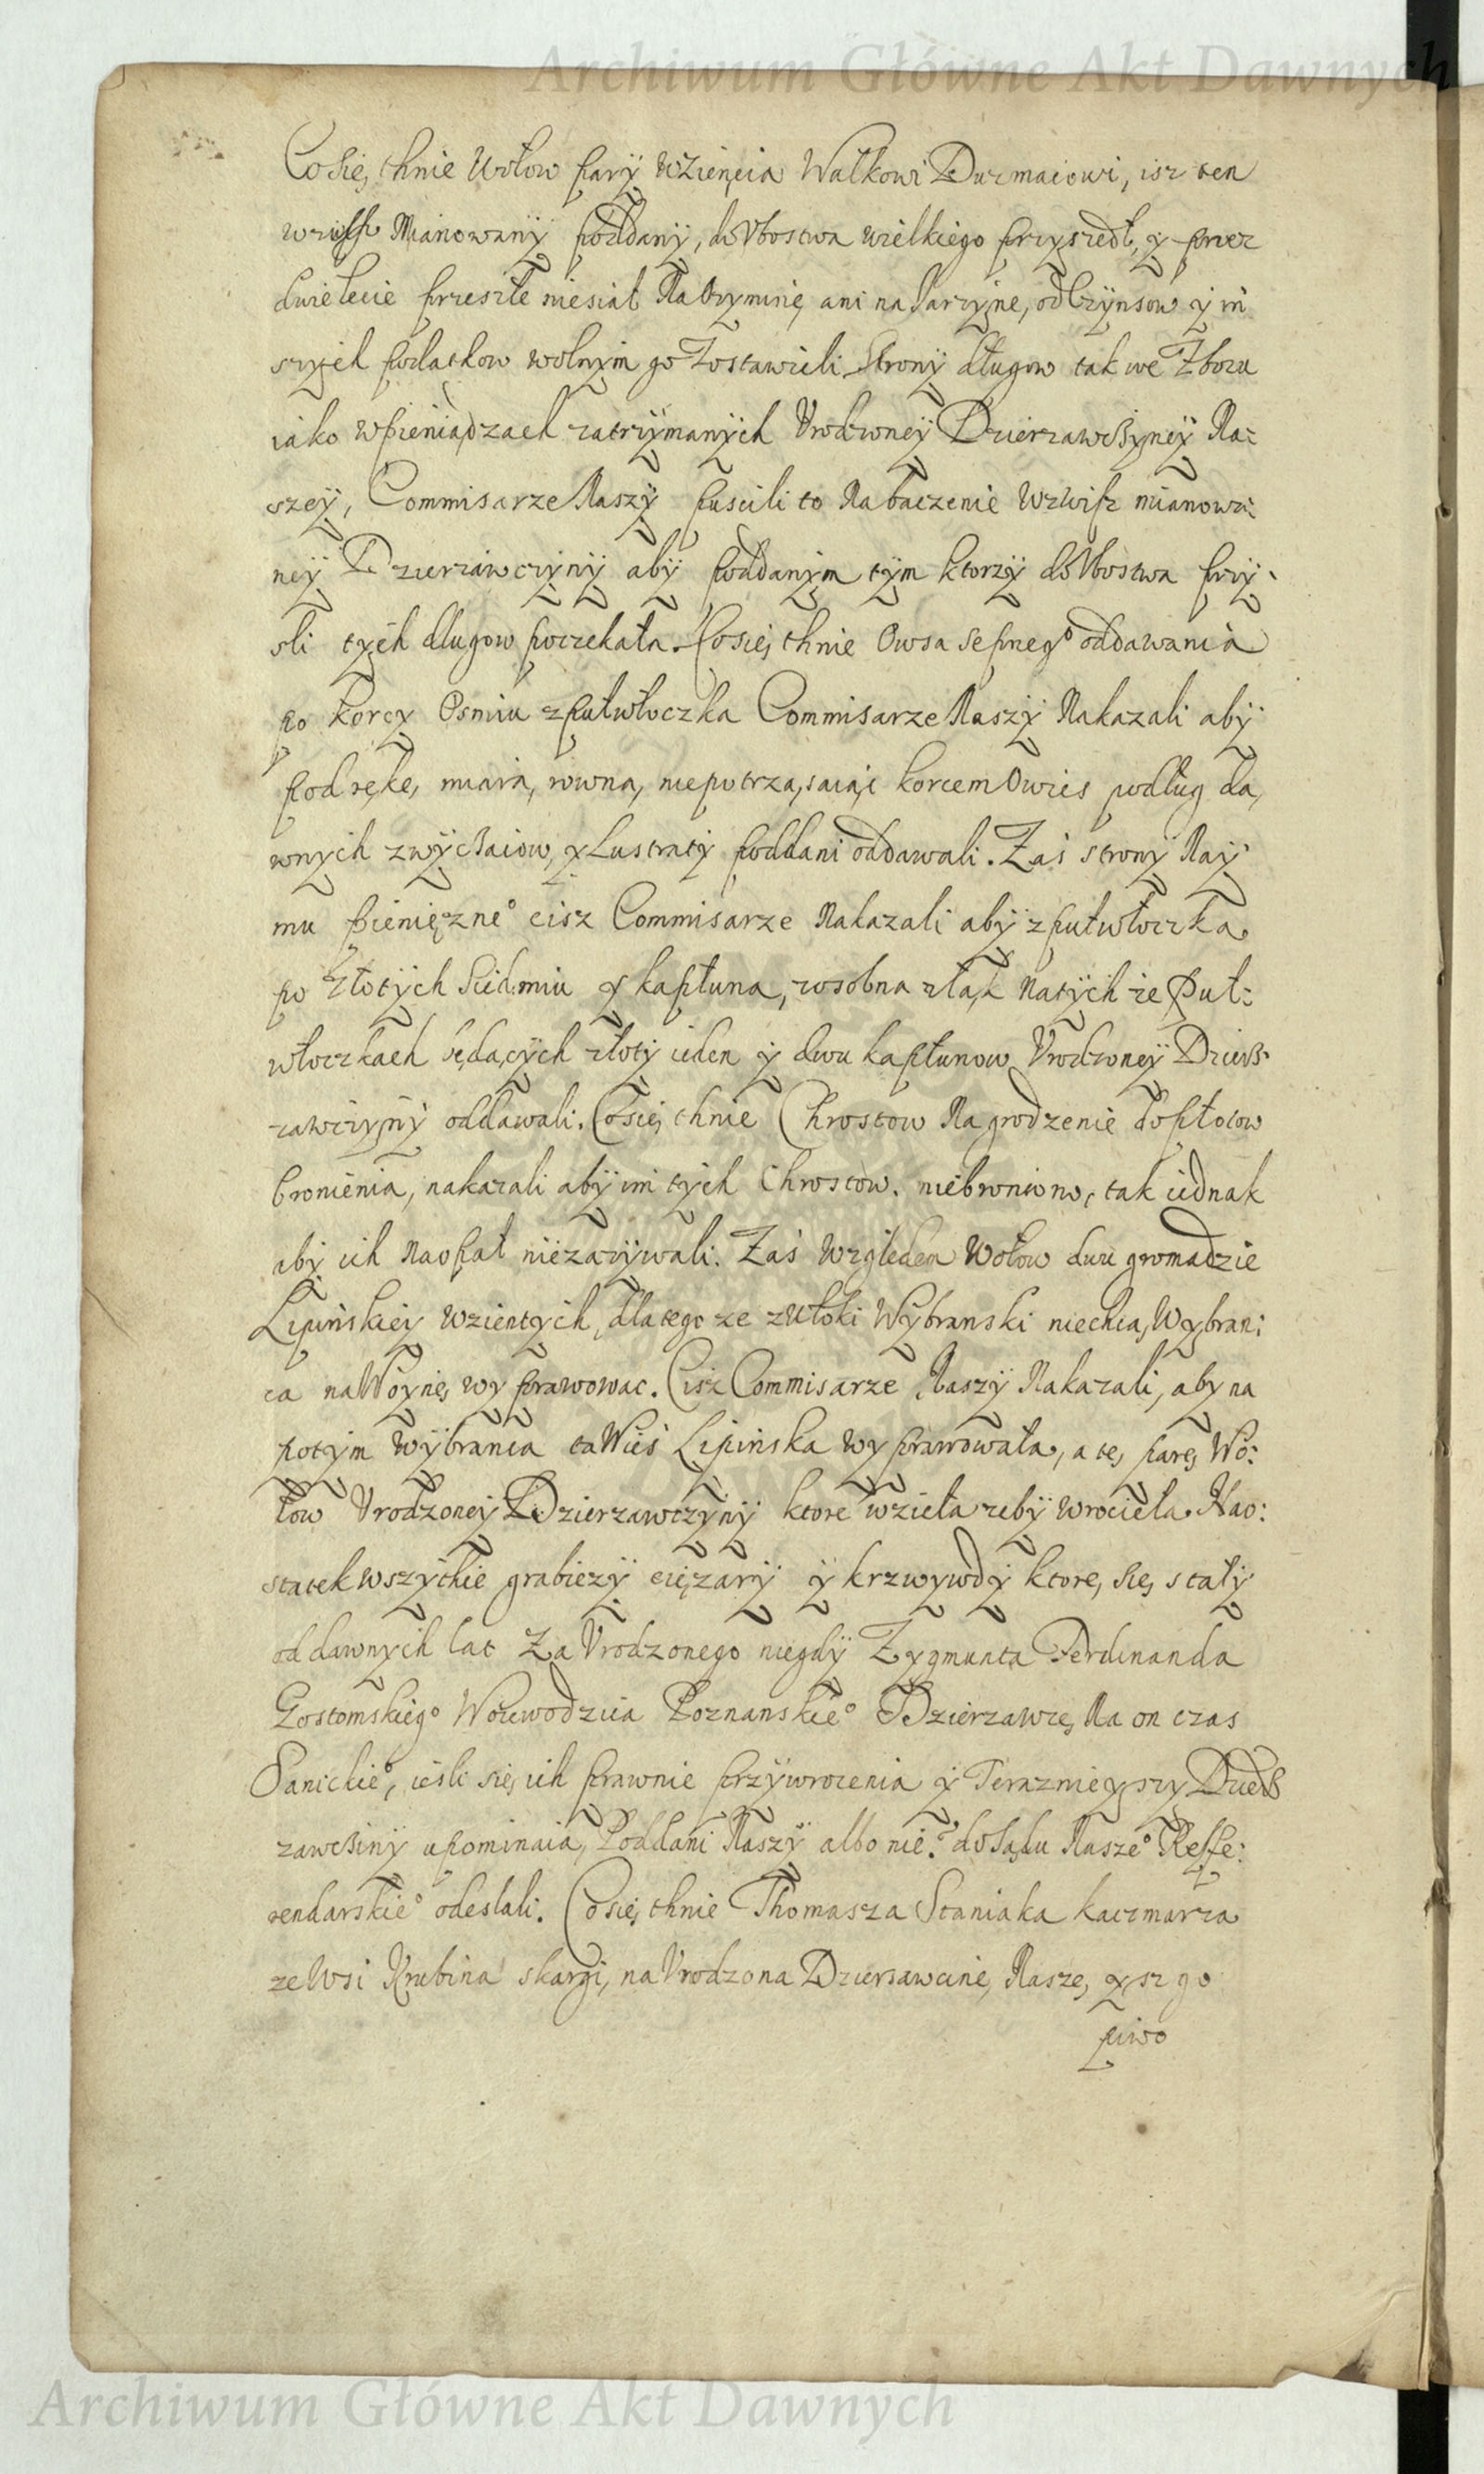 Archiwum Główne Akt Dawnych
Co się thnie Wołow pary Wzięcia Walkowi Durmaiowi, isz ten
Mianowany poddany, do Vbostwa wielkiego przyszedł, y przez
dwie lecie przeszłe niesiał Na Ozyminę ani na Jarzynę, od Czynsow y in
szych podatkow wolnym go Zostawieli. Strony długow tak we Zbozu
iako w pieniądzach zatrzymanych Vrodzoney Dzierzawczyney Na:
szey, Commisarze Naszy puscili to Na baczenie Wzwisz mianowa:
ney Dzierzawczyny aby poddanym tym ktorzy do Vbostwa przy:
sli tych dlugow poczekała. Co się thnie Owsa Sepneg° oddawania
po korcy Osmiu z pułwłoczka Commisarze Naszy Nakazali aby
pod rękę, miarą, rowną, nie potrząsaiąc korcem Owies podług da,
wnych zwyczaiow, y Lustraty poddani oddawali. Zaś strony Nay
mu pienięzne° cisz Commisarze Nakazali aby z pułwłoczka
po Złotych Siedmiu y kapłuna, zosobna zaś Na tych ze Puł:
włoczkach będących złoty ieden y dwu kapłunow Vrodzoney Dzier
zawczyny oddawali. Co się thnie Chrostow Na grodzenie do płotow
bronienia, nakazali aby im tych Chrostow niebroniono, tak iednak
aby ich Na opał niezazywali. Zaś Względem Wołow dwu gromadzie
Lipińskiey wzientych, dlatego ze z Włoki Wybranski niechcą, Wybrani
ca na Woynę wyprawowac. Cisz Commisarze Naszy Nakazali, aby na
potym Wybranca ta Wieś Lipinska wyprawowała, a tę parę Wo:
łow Vrodzoney Dzierzawczyny ktore wzieła zeby wrocieła. Nao:
statek wszytkie grabiezy cięzary y krzwywdy ktore, się stały
od dawnych lat Za Vrodzonego niegdy Zygmunta Ferdinanda
Gostomskiego Woiewodzica Poznanskie° Dzierzawcę, Na on czas
Sanickie°, iesli się ich prawnie przywrocenia y Terazniey szy Dzier
zawczyny upominaią, Poddani Naszy albo nie. do Sądu Nasze° Reffe:
rendarskie° odeslali. Co się thnie Thomasza Staniaka kaczmarza
ze Wsi Krubina skargi, na Vrodzona Dzierzawcinę, Naszę, ysz go
piwo
Archiwum Główne Akt Dawnych